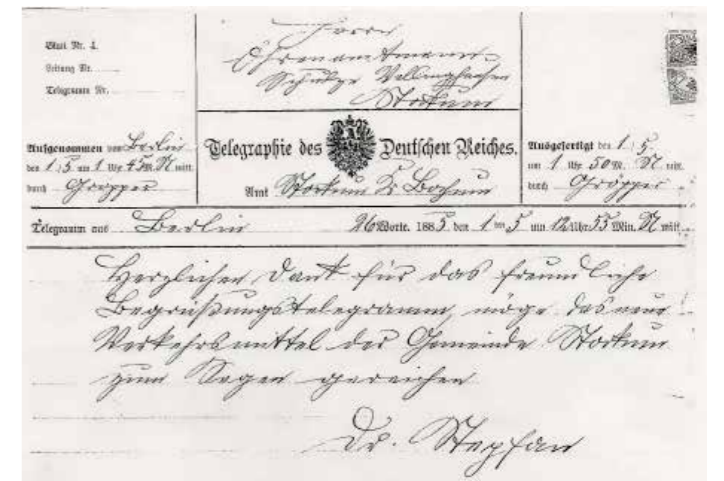 Blatt Nr. 4.
Leitung Nr.
Telegramm Nr.
Herrn
Ehrenamtmann
Schulze Vellinghausen
Stockum
Aufgenommen von Berlin
den 1/5 um 1 Uhr 45 M. N mitt.
durch Gröpper
Telegraphie des Deutschen Reiches.
Amt Stockum Kr Bochum
Ausgefertigt den 1/5
um 1 Uhr 50 M. N mitt.
durch Gröpper
Telegramm aus Berlin 26 Worte. 1885 den 1 ten 5 um 12 Uhr 55 Min. N mitt.
Herzlichen Dank für das freundliche
Begrüßungstelegramm, möge das neue
Verkehrsmittel der Gemeinde Stockum
zum Segen gereichen
Dr. Stephan